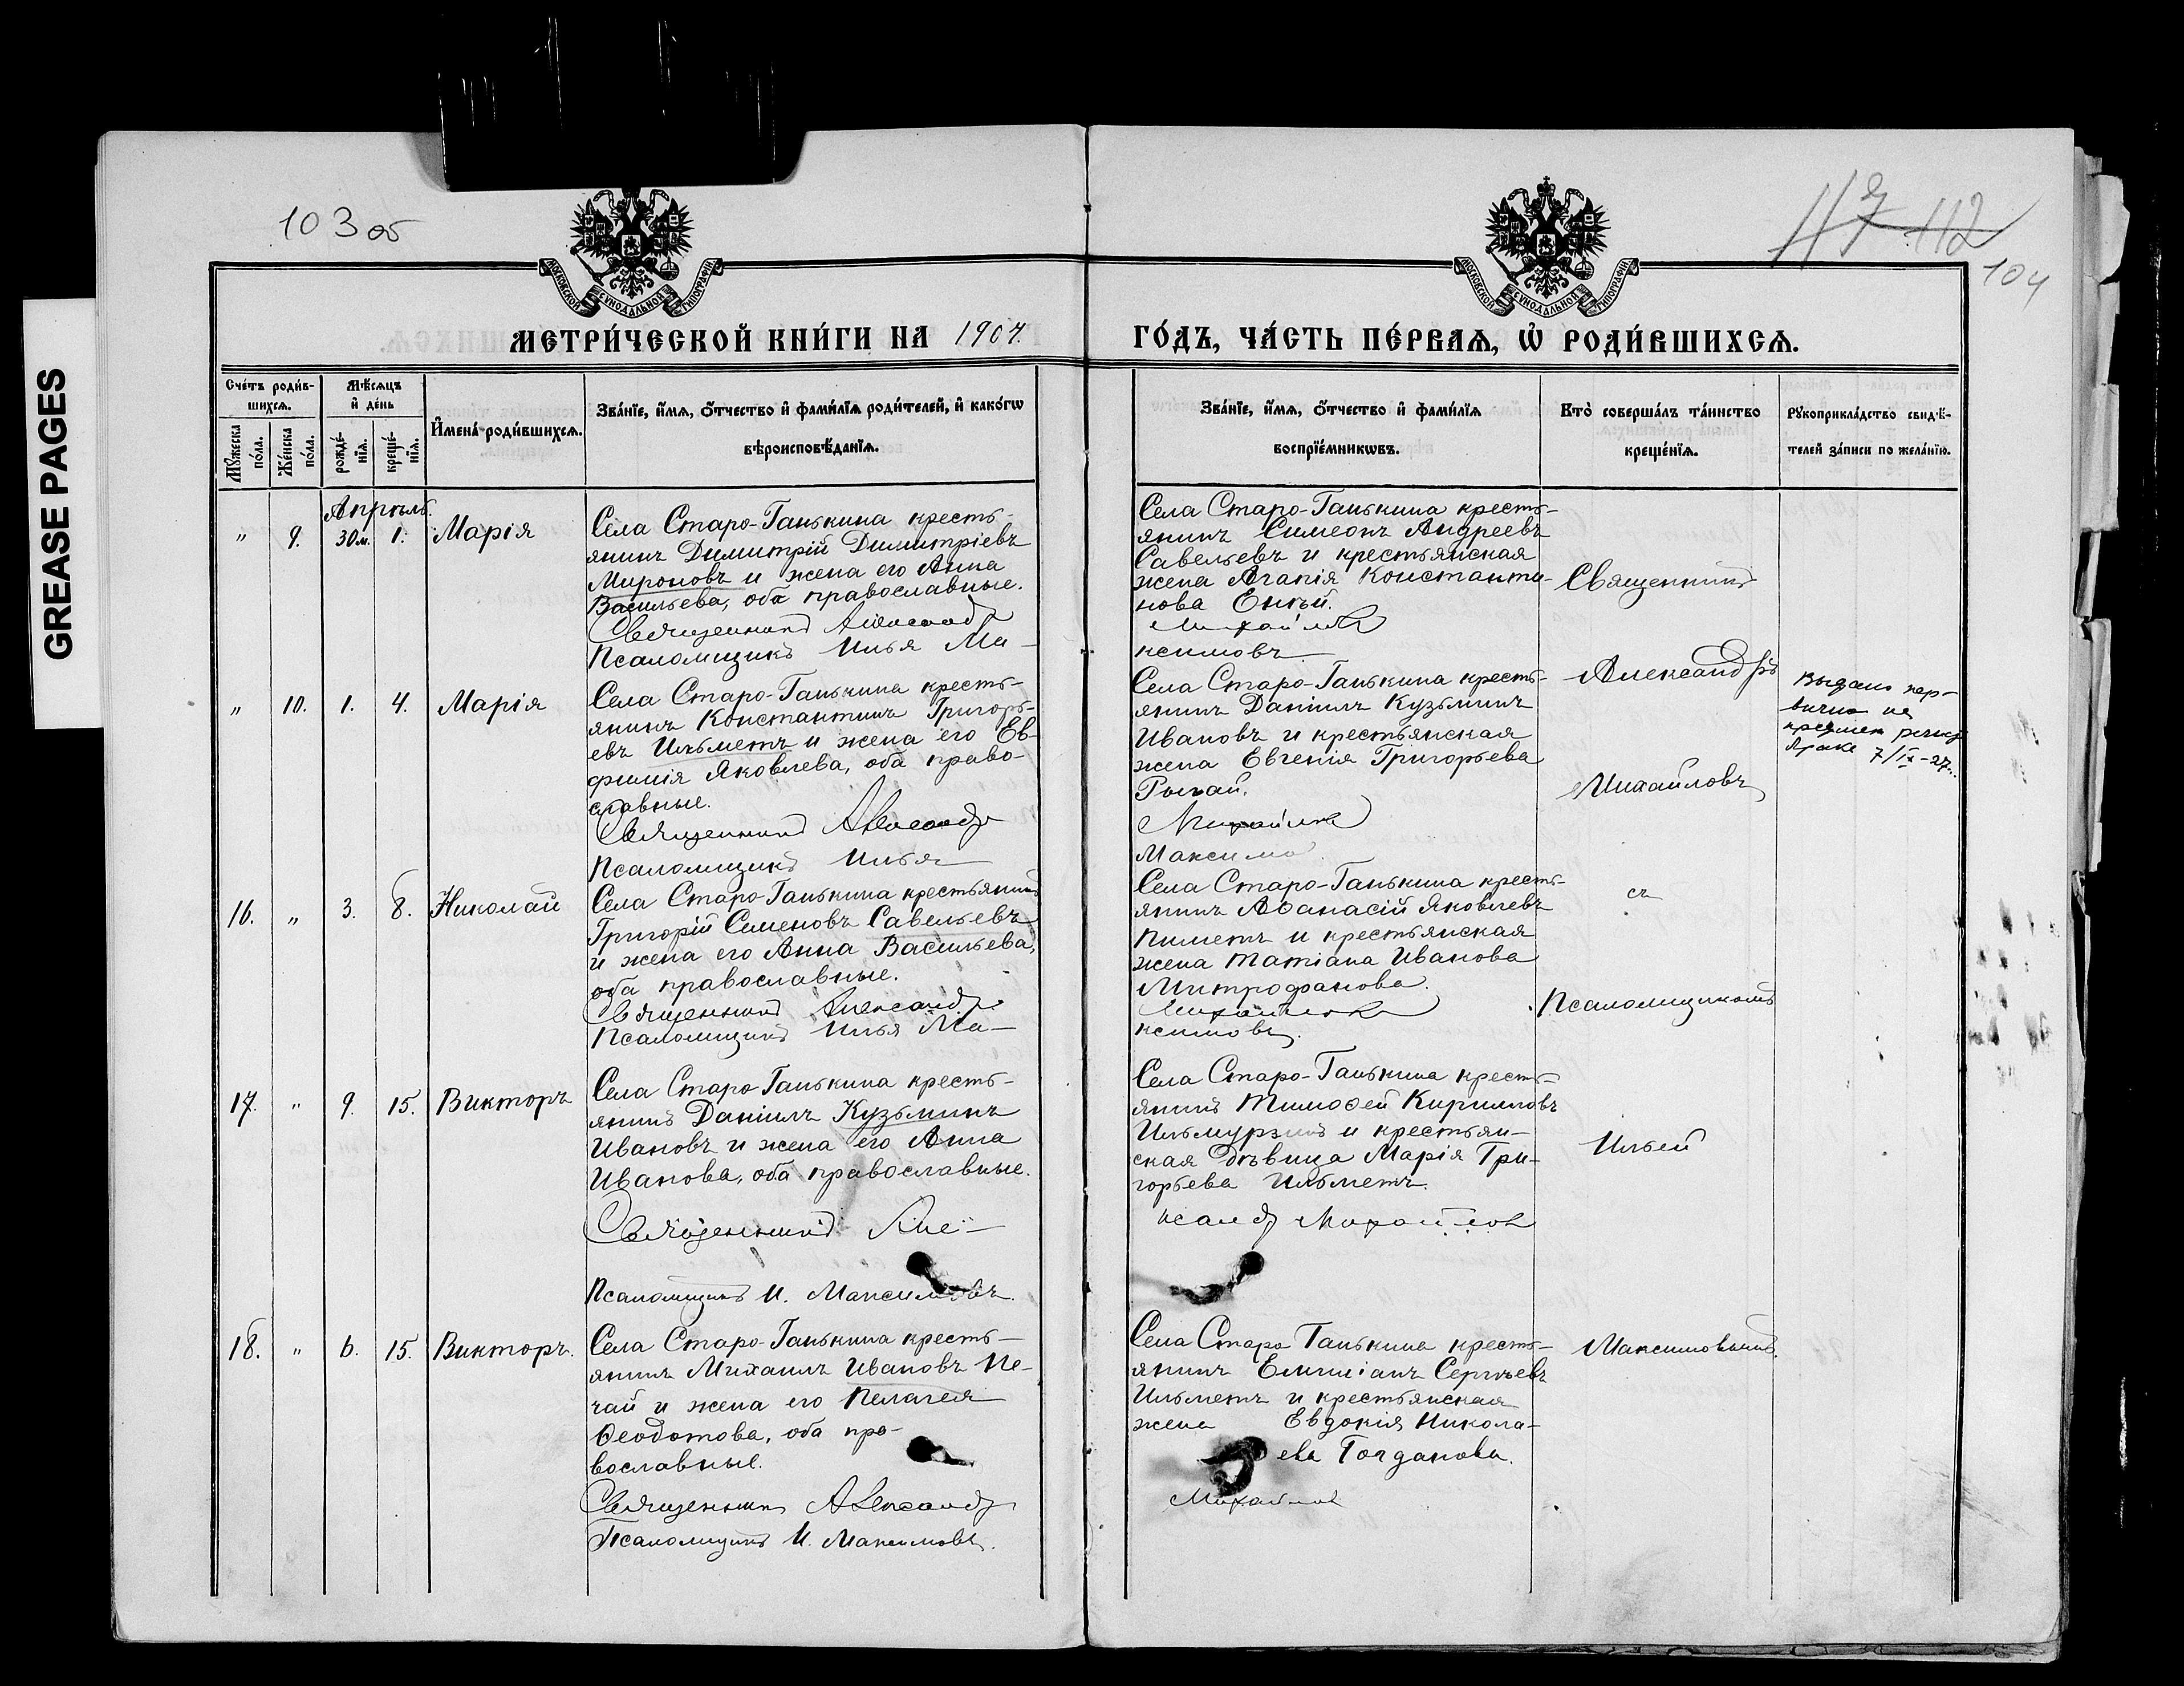 GREASE PAGES
103 об
117 112
104
МОСКОВСКОЙ СѴНОДАЛЬНОЙ ТИПОГРАФІИ
МОСКОВСКОЙ СѴНОДАЛЬНОЙ ТИПОГРАФІИ
МЕТРИ́ЧЕСКОЙ КНИ́ГИ НА 1904.
ГО́ДЪ, ЧА́СТЬ ПЕ́РВАѦ, Ѿ РОДИ́ВШИХСѦ.
Сче́тъ роди́в-
шихсѧ.
Мѣ́сѧцъ
и҆ де́нь
Мꙋ́жеска
по́ла.
Же́нска
по́ла.
рожде́-
нїѧ.
креще́-
нїѧ.
И҆мена̀ роди́вшихсѧ.
Зва́нїе, и҆́мѧ, ѻ҆́тчество и҆ фами́лїѧ роди́телей, и҆ како́гѡ
вѣроисповѣ́данїѧ.
Зва́нїе, и҆́мѧ, ѻ҆́тчество и҆ фами́лїѧ
воспрїе́мникѡвъ.
Кто̀ соверша́лъ та́инство
креще́нїѧ.
Рꙋкоприкла́дство свидѣ́-
телей за́писи по жела́нїю.
Апрѣль.
" 9. 30м. 1. Марія
Села Старо-Ганькина кресть-
янинъ Димитрій Димитріевъ
Мироновъ и жена его Анна
Васильева, оба православные.
Священникъ Александръ
Псаломщикъ Илья Ма-
Села Старо-Ганькина кресть-
янинъ Симеонъ Андреевъ
Савельевъ и крестьянская
жена Агапія Константи-
нова Енгъй.
Михайловъ
ксимовъ
Священникъ
" 10. 1. 4. Марія
Села Старо-Ганькина кресть-
янинъ Константинъ Григорь-
евъ Ильметъ и жена его Ев-
фимія Яковлева, оба право-
славные.
Священникъ Александръ
Псаломщикъ Илья
Села Старо-Ганькина кресть-
янинъ Даніилъ Кузьминъ
Ивановъ и крестьянская
жена Евгенія Григорьева
Михайлов
Максимо
Александръ
Михайловъ
7/IX-27
16. " 3. 8. Николай
Села Старо-Ганькина крестьянинъ
Григорій Семеновъ Савельевъ
и жена его Анна Васильева,
оба православные.
Священникъ Александръ
Псаломщикъ Илья Ма-
Села Старо-Ганькина кресть-
янинъ Аѳанасій Яковлевъ
Пиметъ и крестьянская
жена Татіана Иванова
Митрофанова.
Михайловъ
ксимовъ.
съ
Псаломщикомъ
17. " 9. 15. Викторъ
Села Старо-Ганькина кресть-
янинъ Даніилъ Кузьминъ
Ивановъ и жена его Анна
Иванова, оба православные.
Священникъ Але-
Псаломщикъ И. Максимовъ.
Села Старо-Ганькина кресть-
янинъ Тимоѳей Кирилловъ
Ильмурзинъ и крестьян-
ская дѣвица Марія Гри-
горьева Ильметъ.
ксандръ Михайловъ
Ильей
18. " 6. 15. Викторъ.
Села Старо-Ганькина кресть-
янинъ Михаилъ Ивановъ Не-
чай и жена его Пелагея
Ѳеодотова, оба пра-
вославные.
Священникъ Александръ
Псаломщикъ И. Максимовъ.
Села Старо Ганькина кресть-
янинъ Емиліанъ Сергѣевъ
Ильметъ и крестьянская
жена Евдокія Никола-
ева
Михайлов
Максимовымъ.